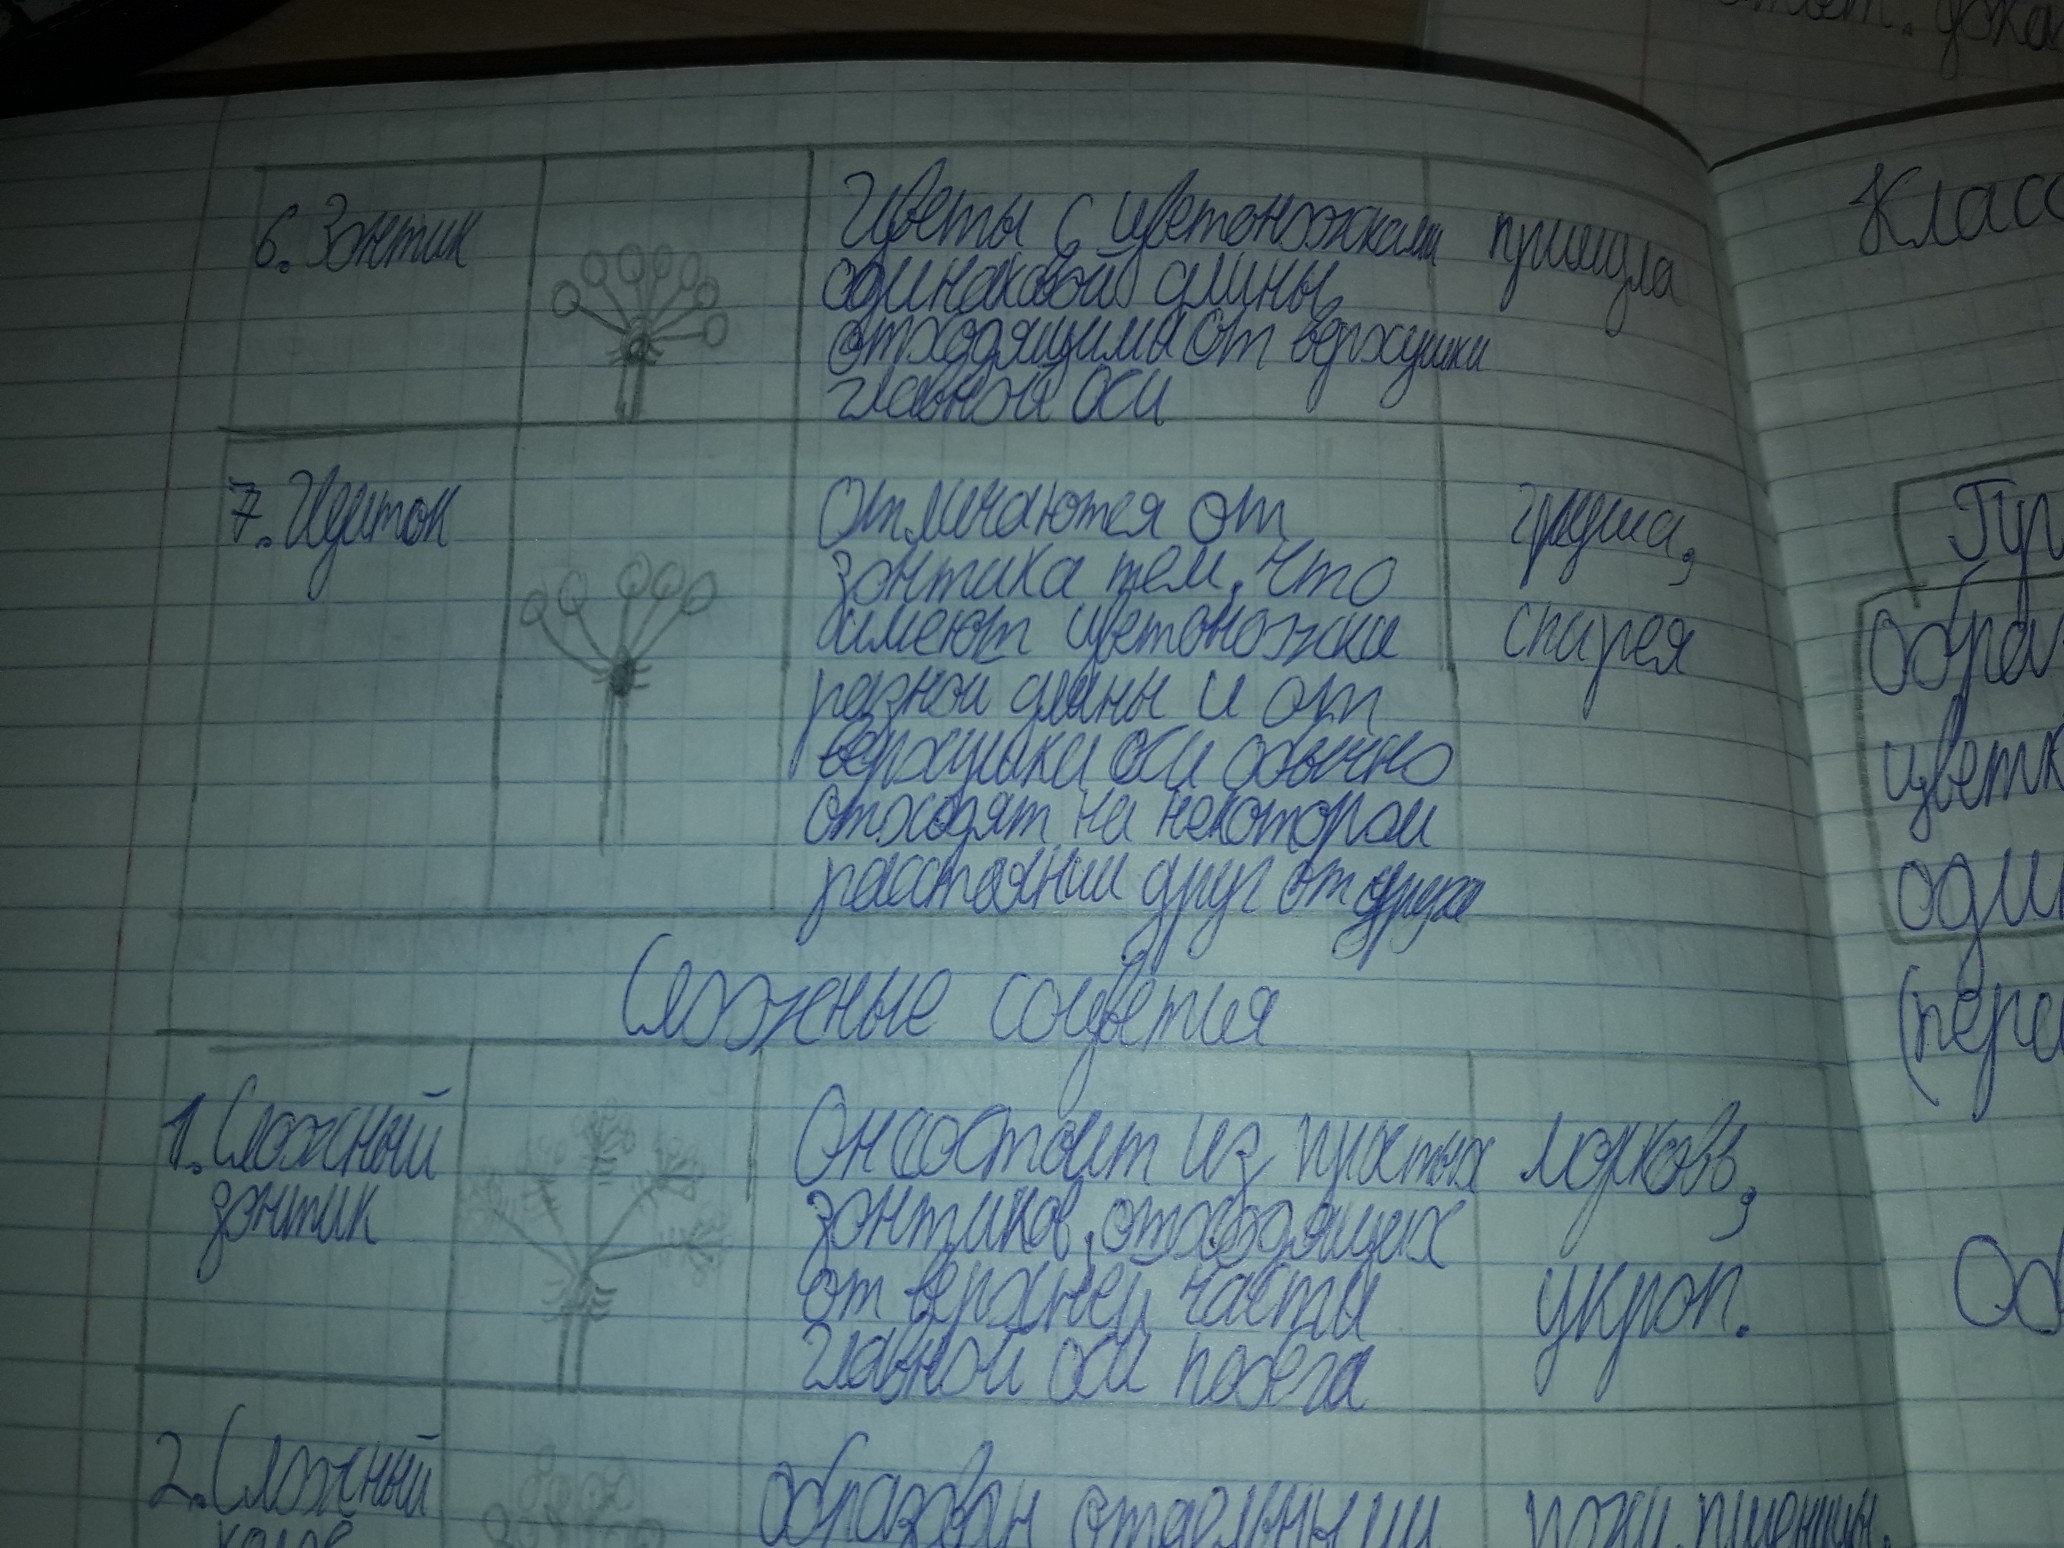 6. Зонтик
Цветы с цветоножками
одинаковой длины,
отходящими от верхушки
главной оси
примула
7. Щиток
Отличаются от
зонтика тем, что
имеют цветоножки
разной длины и от
верхушки оси обычно
отходят на некотором
расстоянии друг от друга
груша,
спирея
Сложные соцветия
1. Сложный
зонтик
Он состоит из простых
зонтиков, отходящих
от верхней части
главной оси побега
морковь,
укроп.
2. Сложный
колос
образован отдельными
пшеницы,
Класс
Обра
цветк
один
(перс
Об